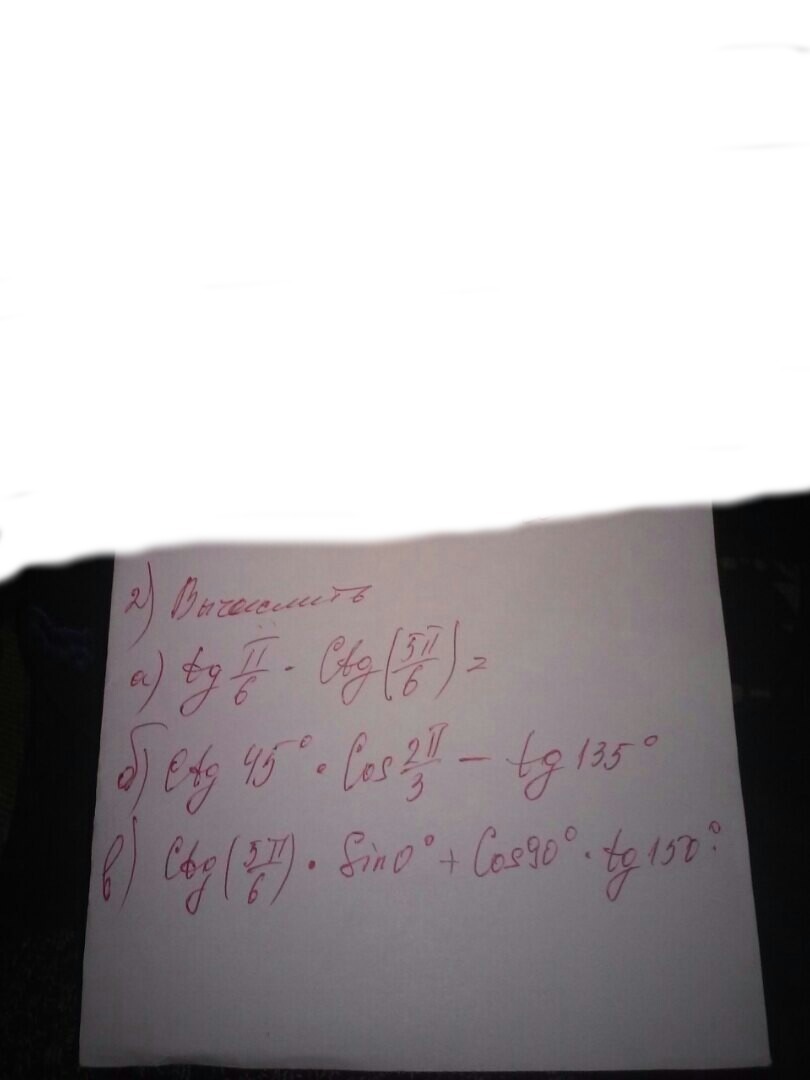 2) Вычислить
а) tg π/6 · Ctg(5π/6) =
б) Ctg 45° · Cos 2π/3 − tg 135°
в) Ctg(5π/6) · Sin0° + Cos90° · tg150°